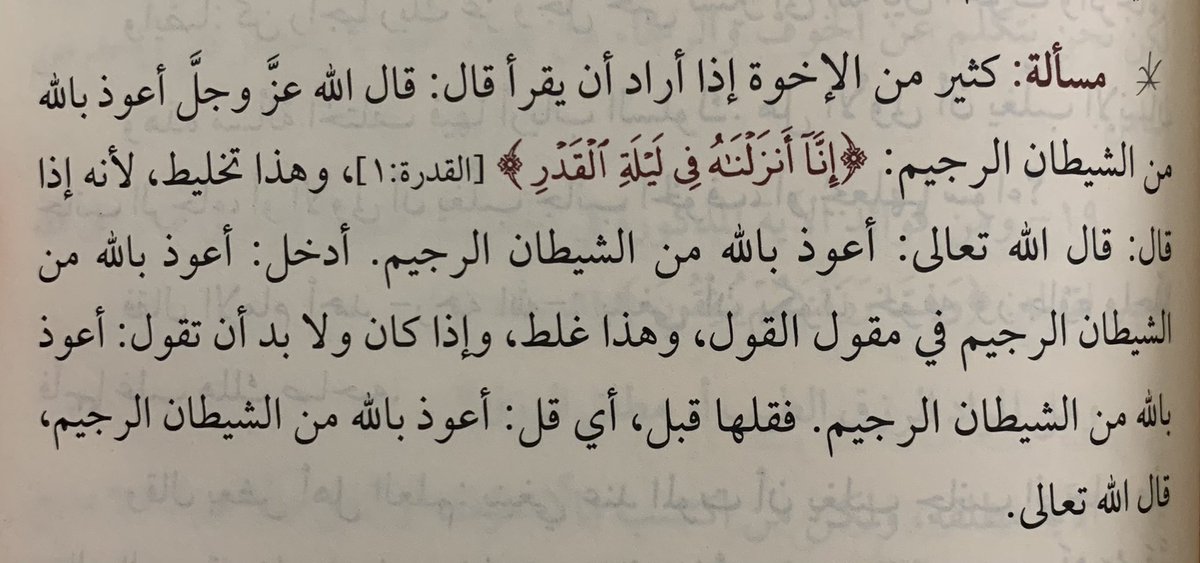 مسألة: كثير من الإخوة إذا أراد أن يقرأ قال: قال الله عزَّ وجلَّ أعوذ بالله
من الشيطان الرجيم: ﴿إِنَّآ أَنزَلْنَٰهُ فِى لَيْلَةِ ٱلْقَدْرِ﴾ [القدرة:١]، وهذا تخليط، لأنه إذا
قال: قال الله تعالى: أعوذ بالله من الشيطان الرجيم. أدخل: أعوذ بالله من
الشيطان الرجيم في مقول القول، وهذا غلط، وإذا كان ولا بد أن تقول: أعوذ
بالله من الشيطان الرجيم. فقلها قبل، أي قل: أعوذ بالله من الشيطان الرجيم،
قال الله تعالى.